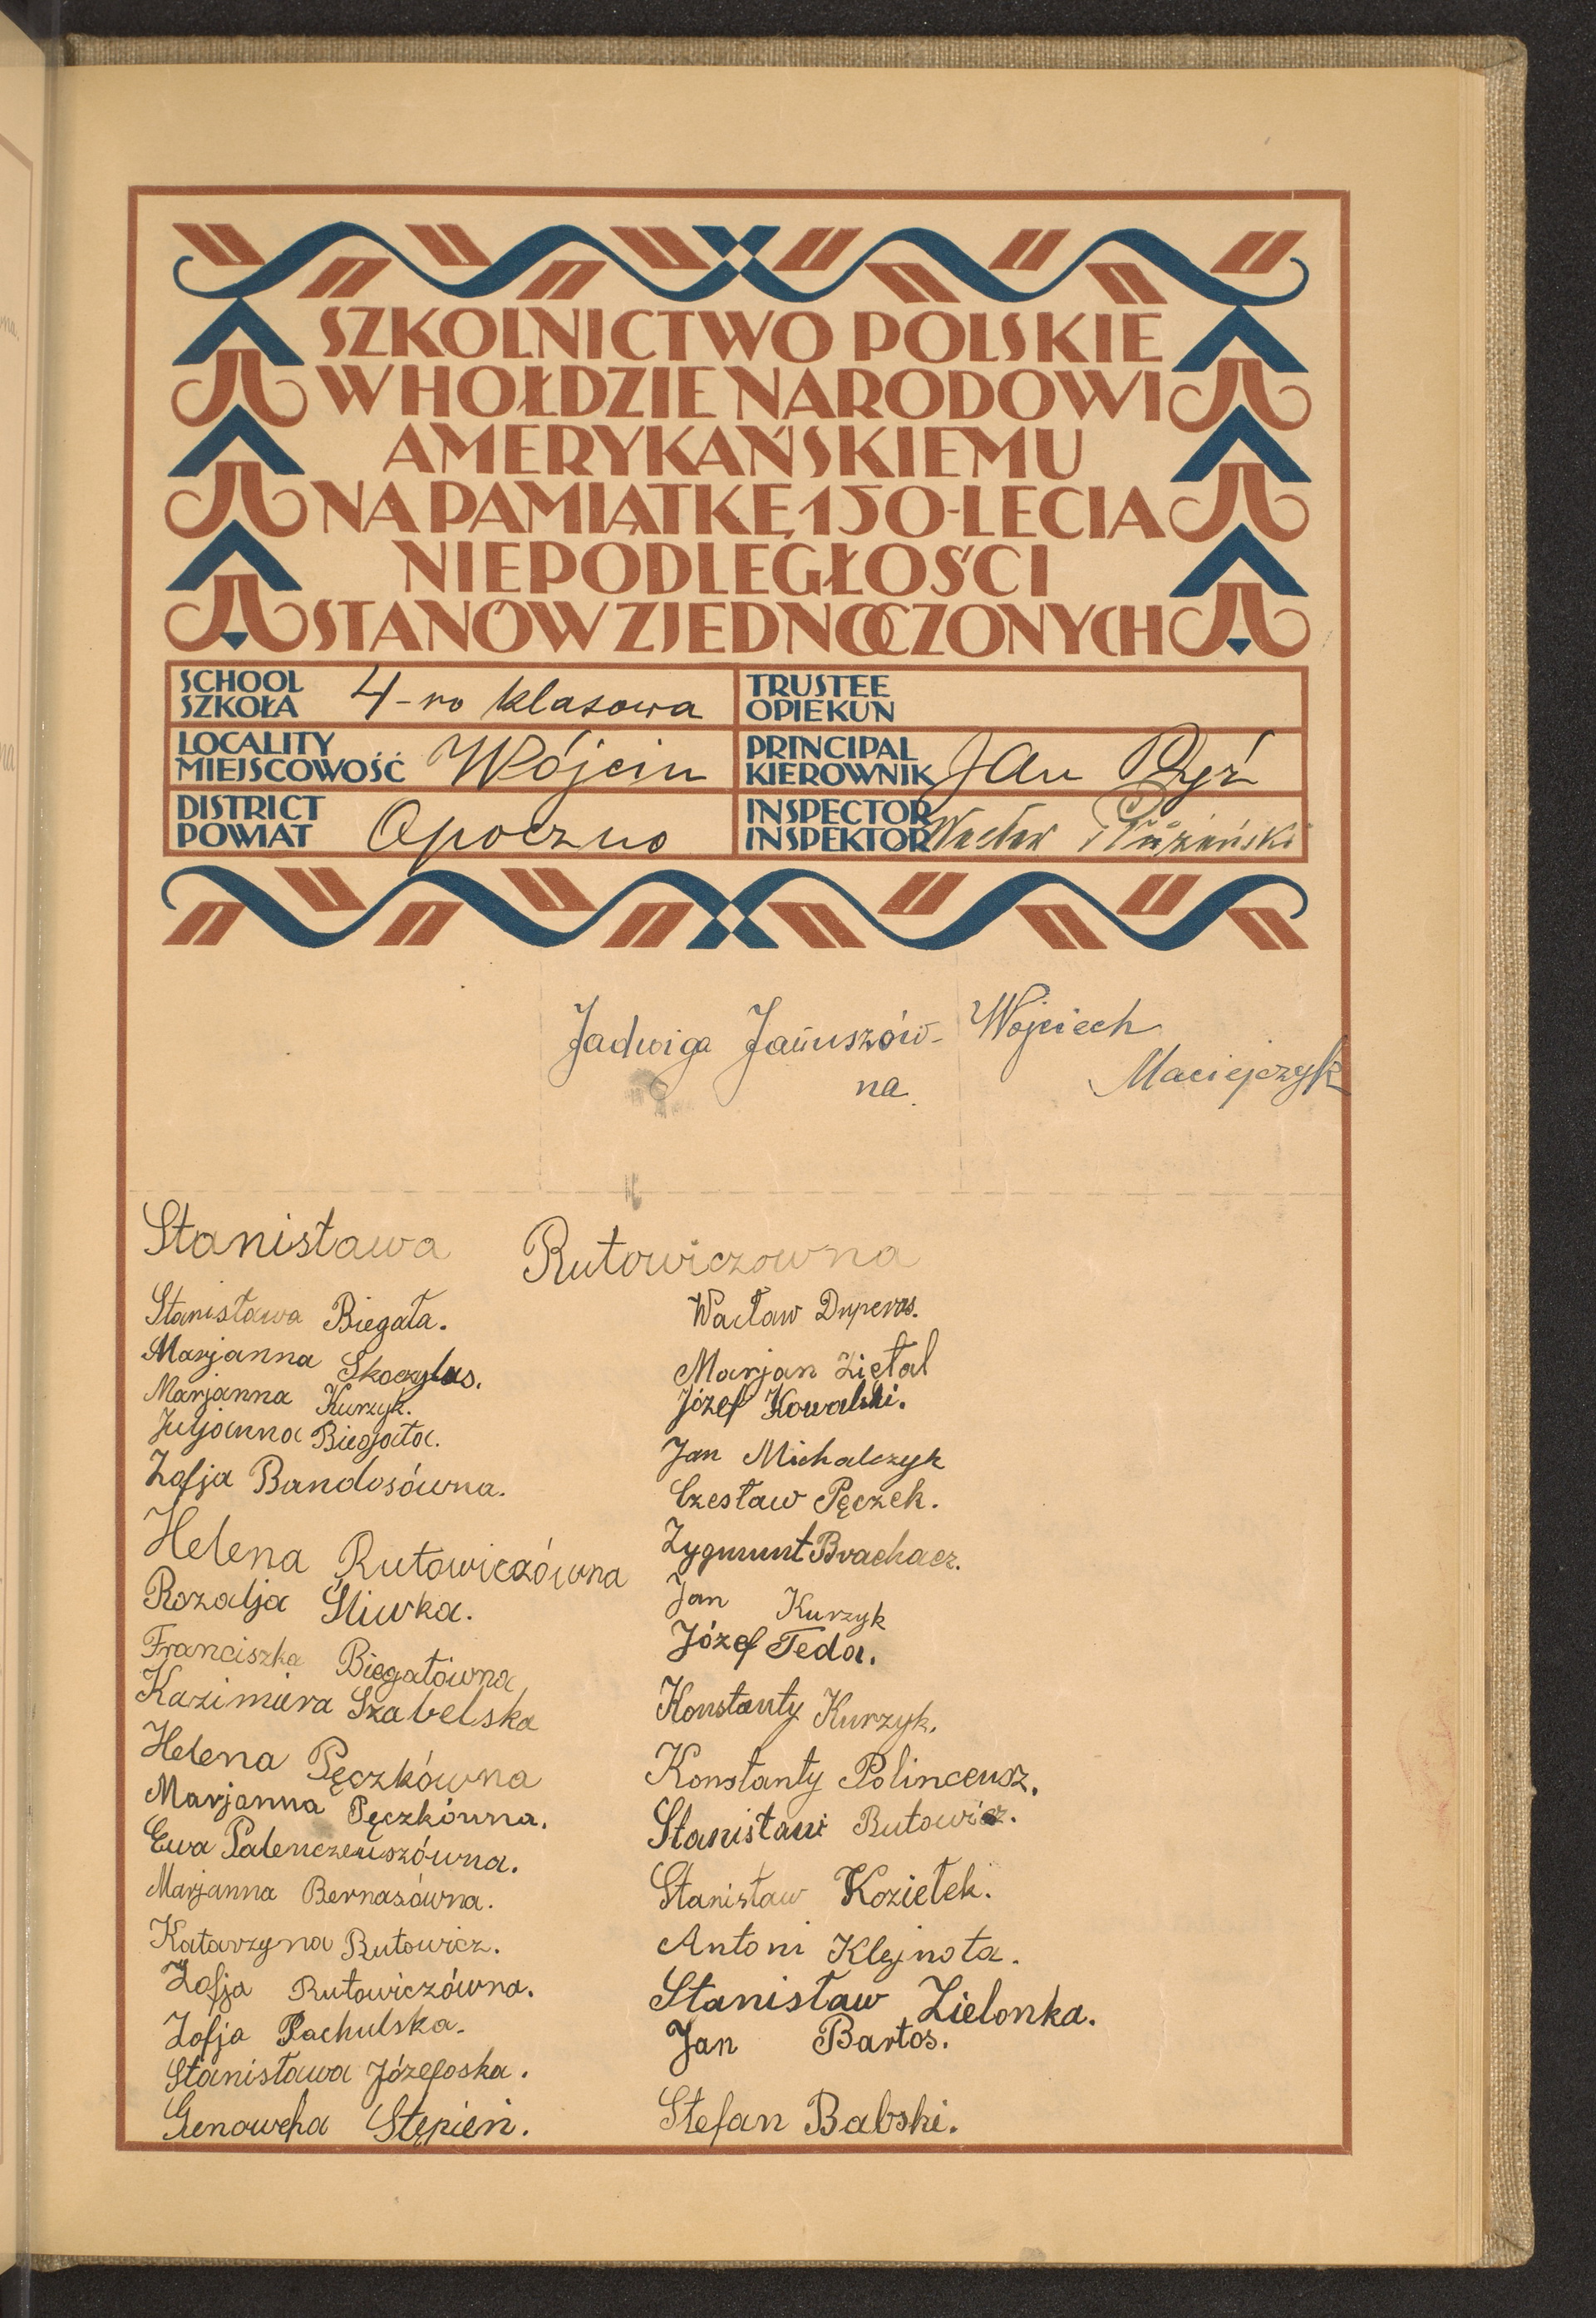 SZKOLNICTWO POLSKIE
W HOŁDZIE NARODOWI
AMERYKAŃSKIEMU
NA PAMIĄTKĘ 150-LECIA
NIEPODLEGŁOŚCI
STANÓW ZJEDNOCZONYCH
SCHOOL
SZKOŁA 4-ro klasowa
TRUSTEE
OPIEKUN
LOCALITY
MIEJSCOWOŚĆ Wójcin
PRINCIPAL
KIEROWNIK Jan Pyź
DISTRICT
POWIAT Opoczno
INSPECTOR
INSPEKTOR Wacław
Jadwiga Januszów-
na.
Wojciech
Maciejczyk
Stanisława Rutowiczowna
Stanisława Biegała.
Marjanna Skoczylas.
Marjanna Kurzyk.
Juljanna Biegała.
Zofja Bandosówna.
Helena Rutowiczówna
Rozalja Śliwka.
Franciszka Biegałówna
Kazimiera Szabelska
Helena Pęczkówna
Marjanna Pęczkówna.
Ewa Palenczeuszówna.
Marjanna Bernasówna.
Katarzyna Rutowicz.
Zofja Rutowiczówna.
Zofja Pachulska.
Stanisława Józefoska.
Genowefa Stępień.
Wacław
Marjan Ziętal
Józef Kowalski.
Jan Michalczyk
Czesław Pęczek.
Zygmunt Brachacz.
Jan Kurzyk
Józef Teda.
Konstanty Kurzyk.
Konstanty Polinceusz.
Stanisław Rutowicz.
Stanisław Koziełek.
Antoni Klejnota.
Stanisław Zielonka.
Jan Bartos.
Stefan Babski.